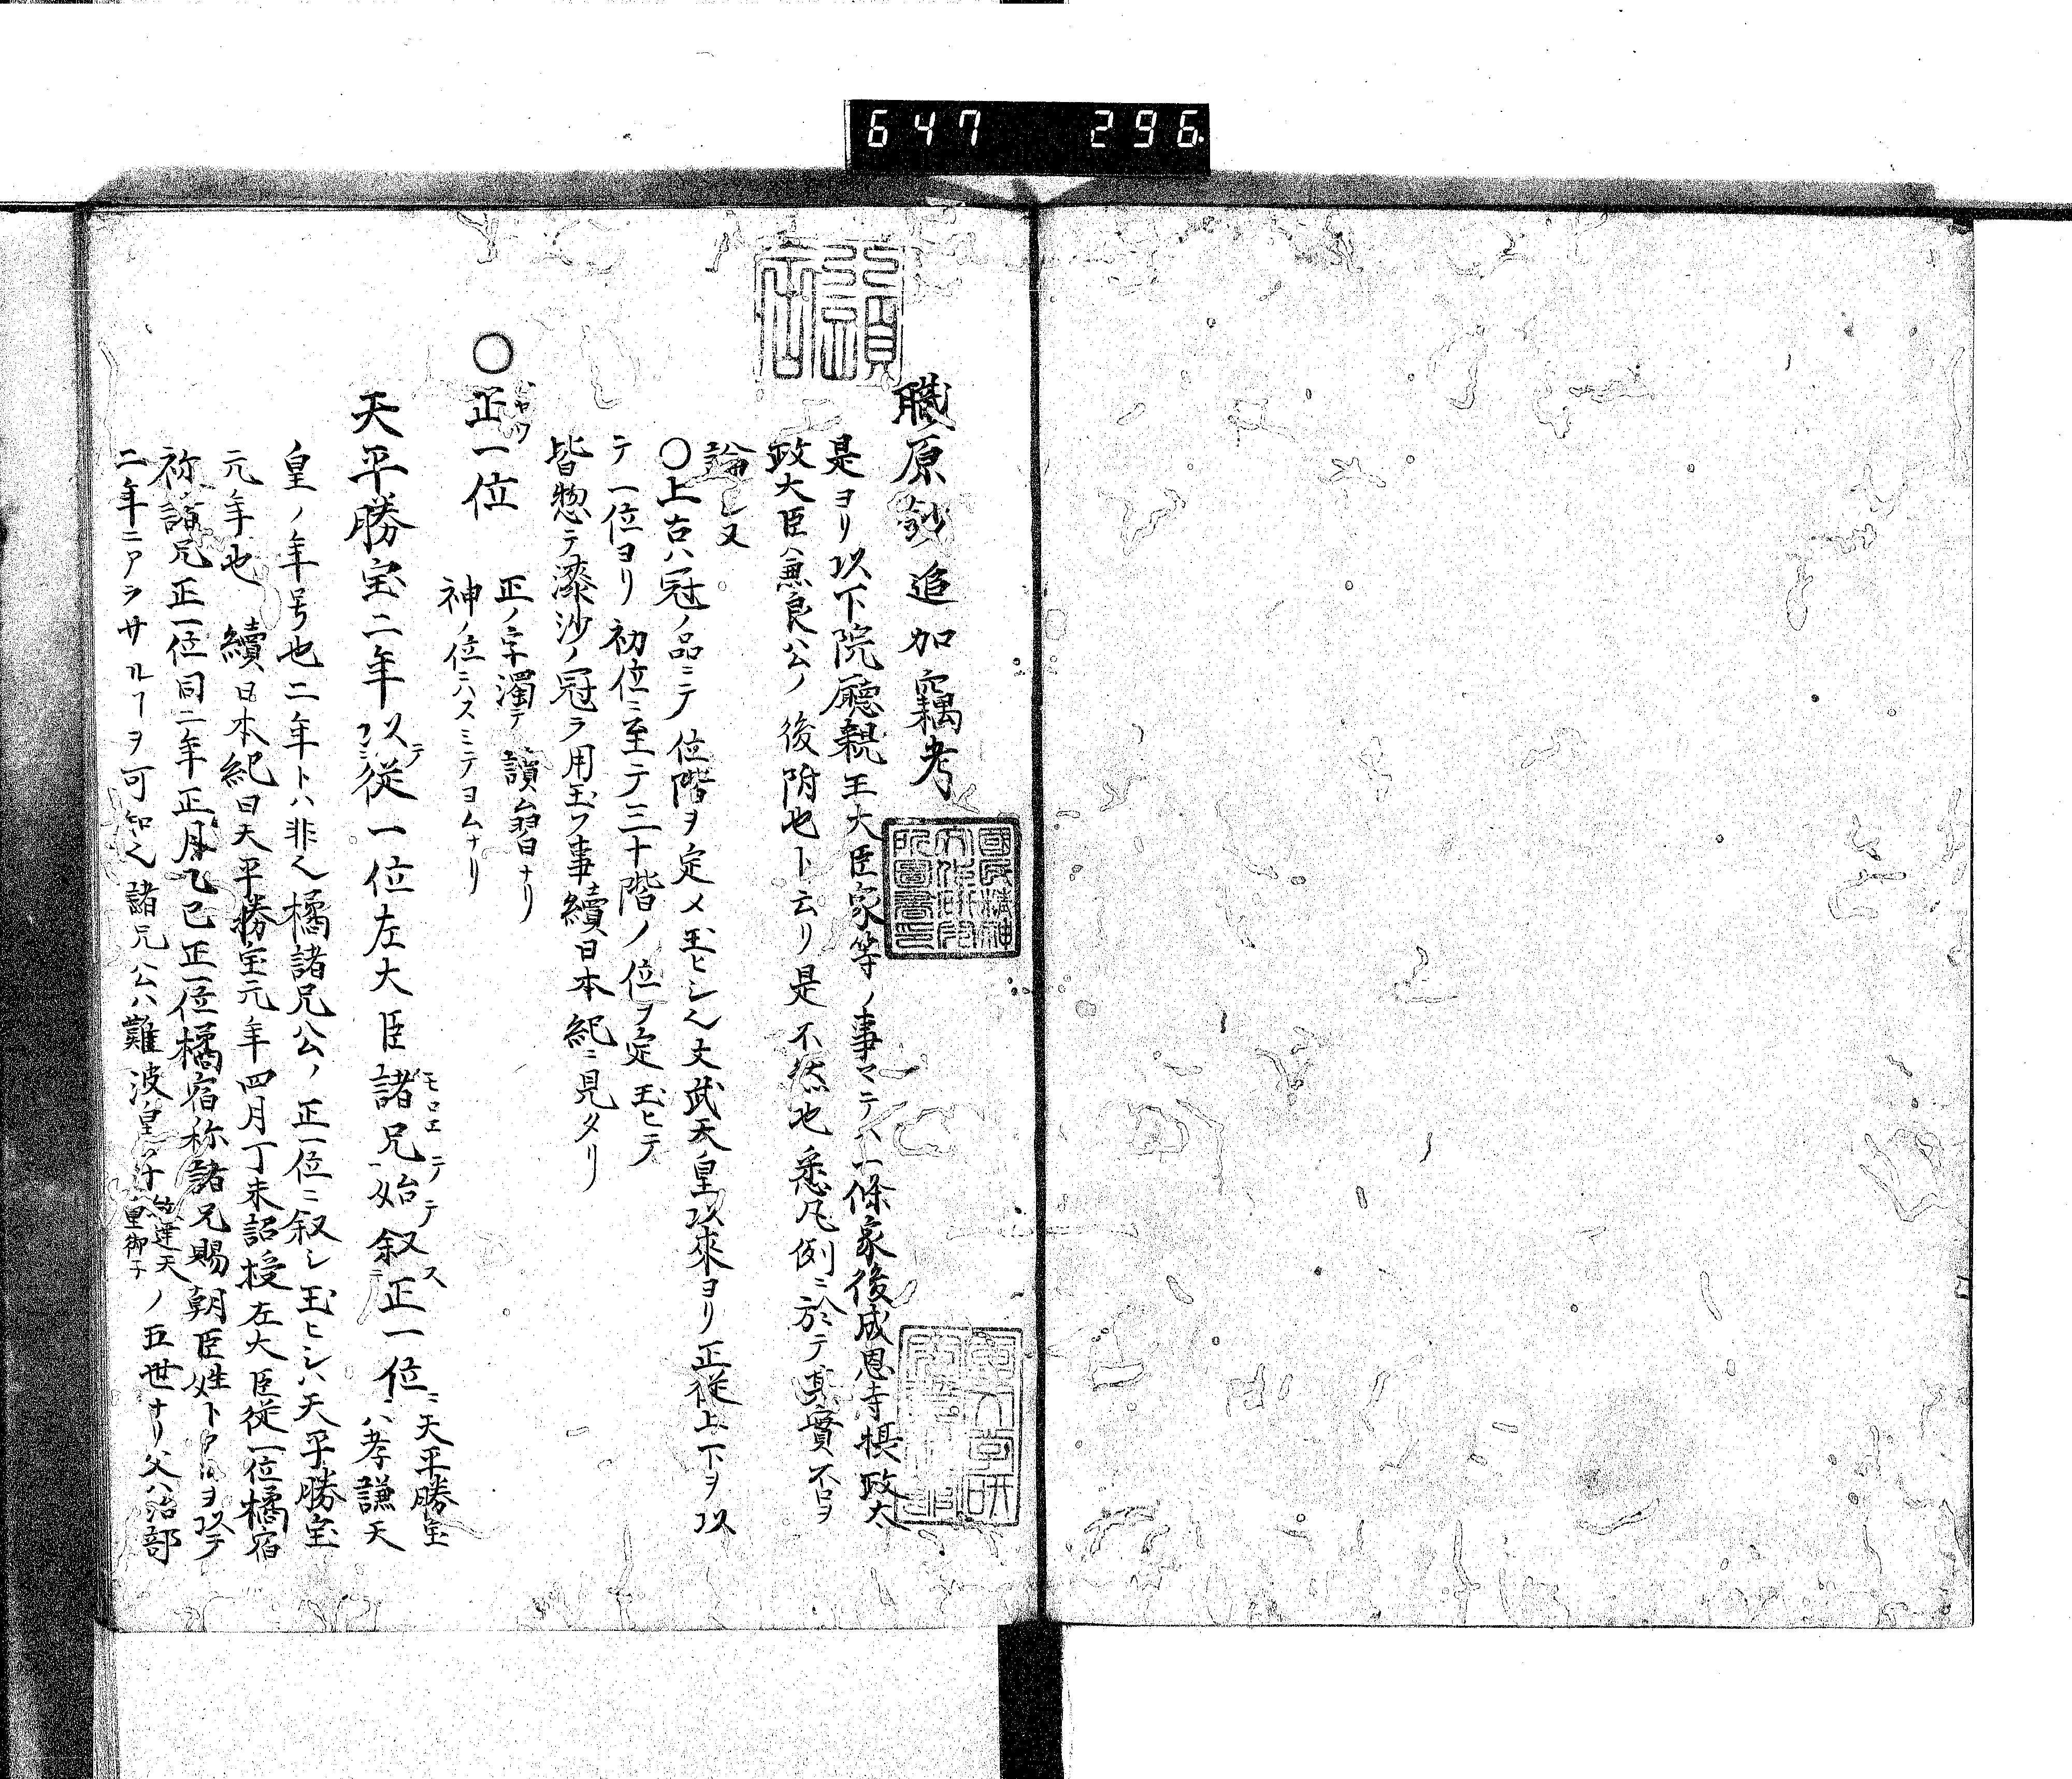 647 296
職原鈔追加竊考
是ヨリ以下院廳親王大臣家等ノ事マテハ一條家後成恩寺摂政太
政大臣兼良公ノ後附也ト云リ是不然也悉凡例ニ於テ真實不ヲ
論シ又
〇上古ハ冠ノ品ニテ位階ヲ定メ玉ヒシ也文武天皇以來ヨリ正從上下ヲ以
テ一位ヨリ初位ニ至テ三十階ノ位ヲ定玉ヒテ
皆惣テ漆沙ノ冠ヲ用玉フ事續日本紀ニ見タリ
〇正一位 正ノ字濁テ讀習ナリ
神ノ位ニハスミテヨムナリ
天平勝宝二年以テ従一位左大臣諸兄モロエ始叙ス正一位ニ天平勝宝
ハ孝謙天
皇ノ年号也二年トハ非也橘諸兄公ノ正一位ニ叙シ玉ヒシハ天平勝宝
元年也 續日本紀曰天平勝宝元年四月丁未詔授左大臣従一位橘宿
祢諸兄正一位同二年正月乙巳正一位橘宿祢諸兄賜朝臣姓トアルヲ以テ
二年ニアラサルヿヲ可知也諸兄公ハ難波皇子敏達天皇御子ノ五世ナリ父ハ治部